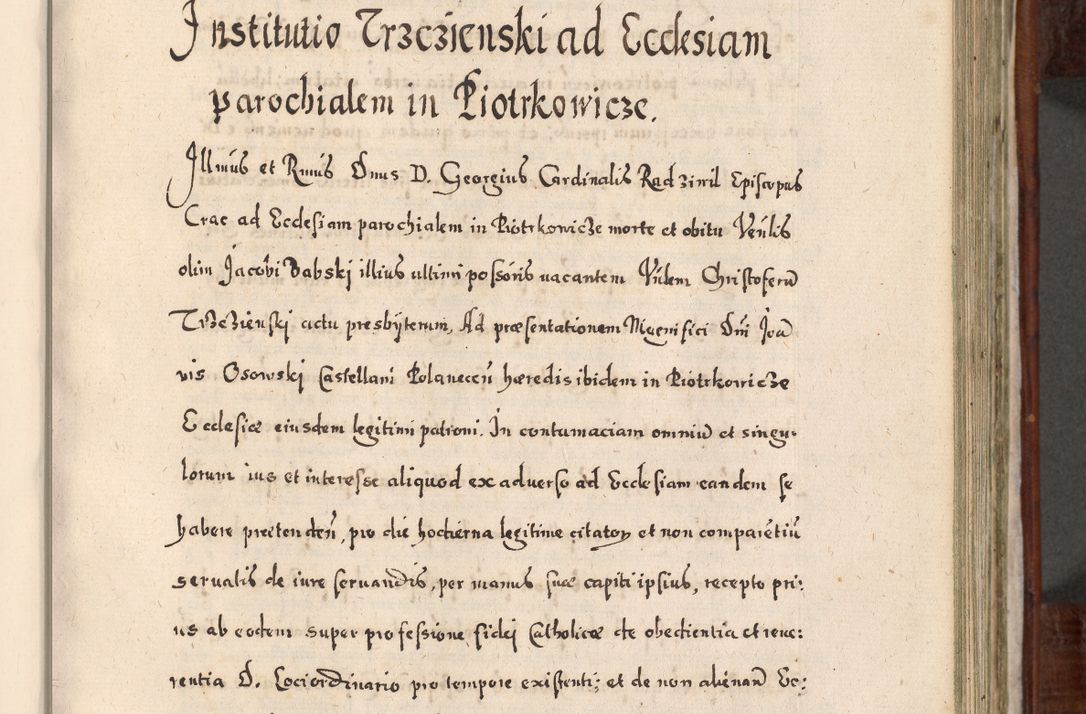 Institutio Trzczienski ad Ecclesiam
parochialem in Piotrkowicze.
Illmus et Rmus Dnus D. Georgius Cardinalis Radziwil Episcopus
Crac ad Ecclesiam parochialem in Piotrkowicze morte et obitu Venlis
olim Jacobi Dabskj illius ultimi possoris vacantem Vnlem Christoferū
Trzczienskj actu presbyterum, Ad præsentationem Magnifici Dni Joā
nis Osowskj Castellani Polanecen̄ hæredis ibidem in Piotrkowicze
Ecclesiæ eiusdem legitimi patroni. In contumaciam omniū et singu:
lorum ius et interesse aliquod ex adverso ad Ecclesiam eandem se
habere prætenden̄, pro die hodierna legitime citatoꝝ et non comparētiū
servatis de iure servandis, per manus suæ capiti ipsius, recepto pri:
us ab eodem super professione fidej Catholicæ de obedientia et reve:
rentia D. Lociordinario pro tempore existenti; et de non alienan̄ Ec: